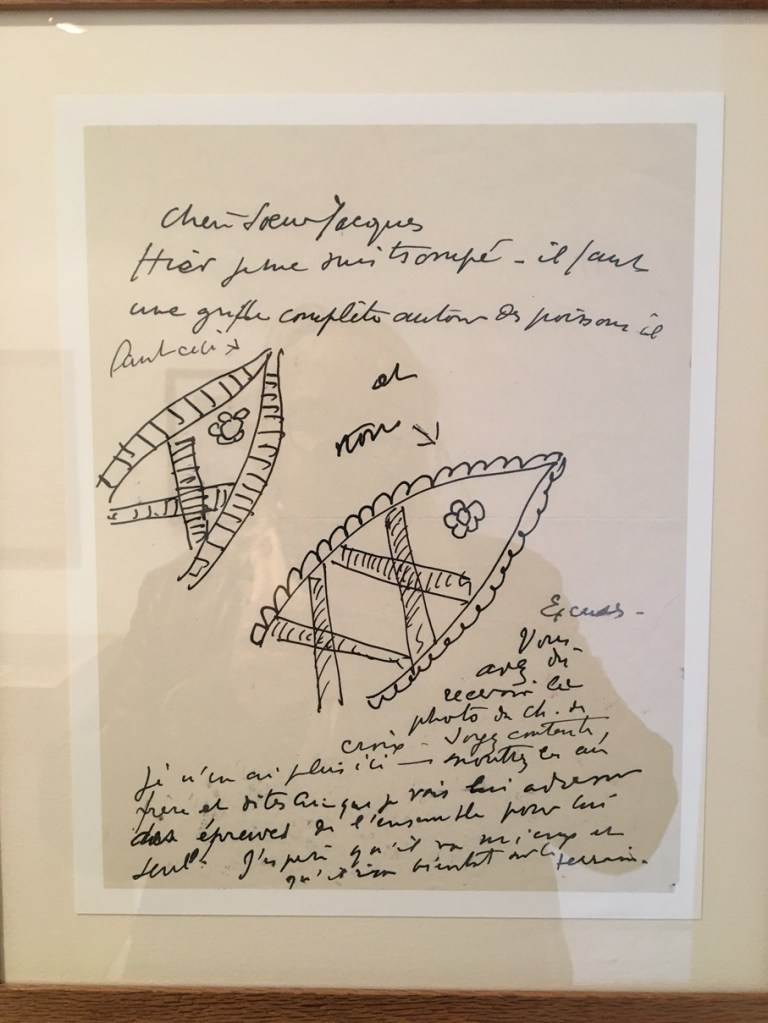 Chère Soeur Jacques
Hier je me suis trompé - il faut
une griffe complète autour des poissons il
faut ceci →
et
non
Excuses -
Vous
avez dû
recevoir les
photo du ch. de
croix - Soyez contente,
Je n'en ai plus ici — montrez les au
frère et dites lui que je vais lui adresser
des épreuves de l'ensemble pour lui
seul. J'espère qu'il va mieux et
qu'il sera bientôt sur le terrain.